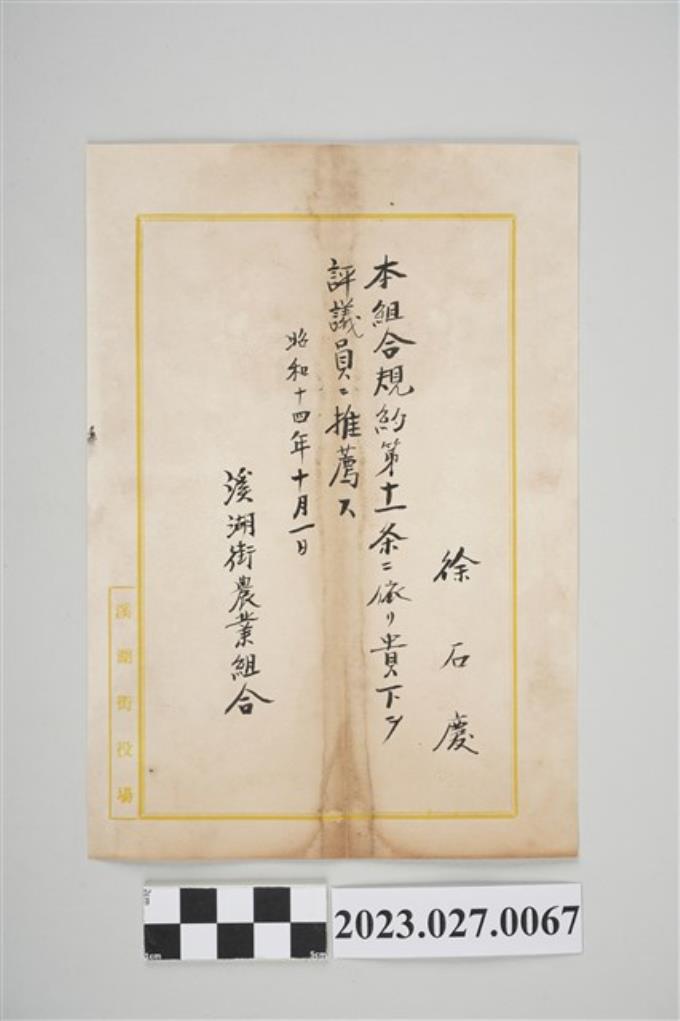 徐石慶
本組合規約第十一条ニ依リ貴下ヲ
評議員ニ推薦ス
昭和十四年十月一日
溪湖街農業組合
溪湖街役場
2023.027.0067
1cm
5cm